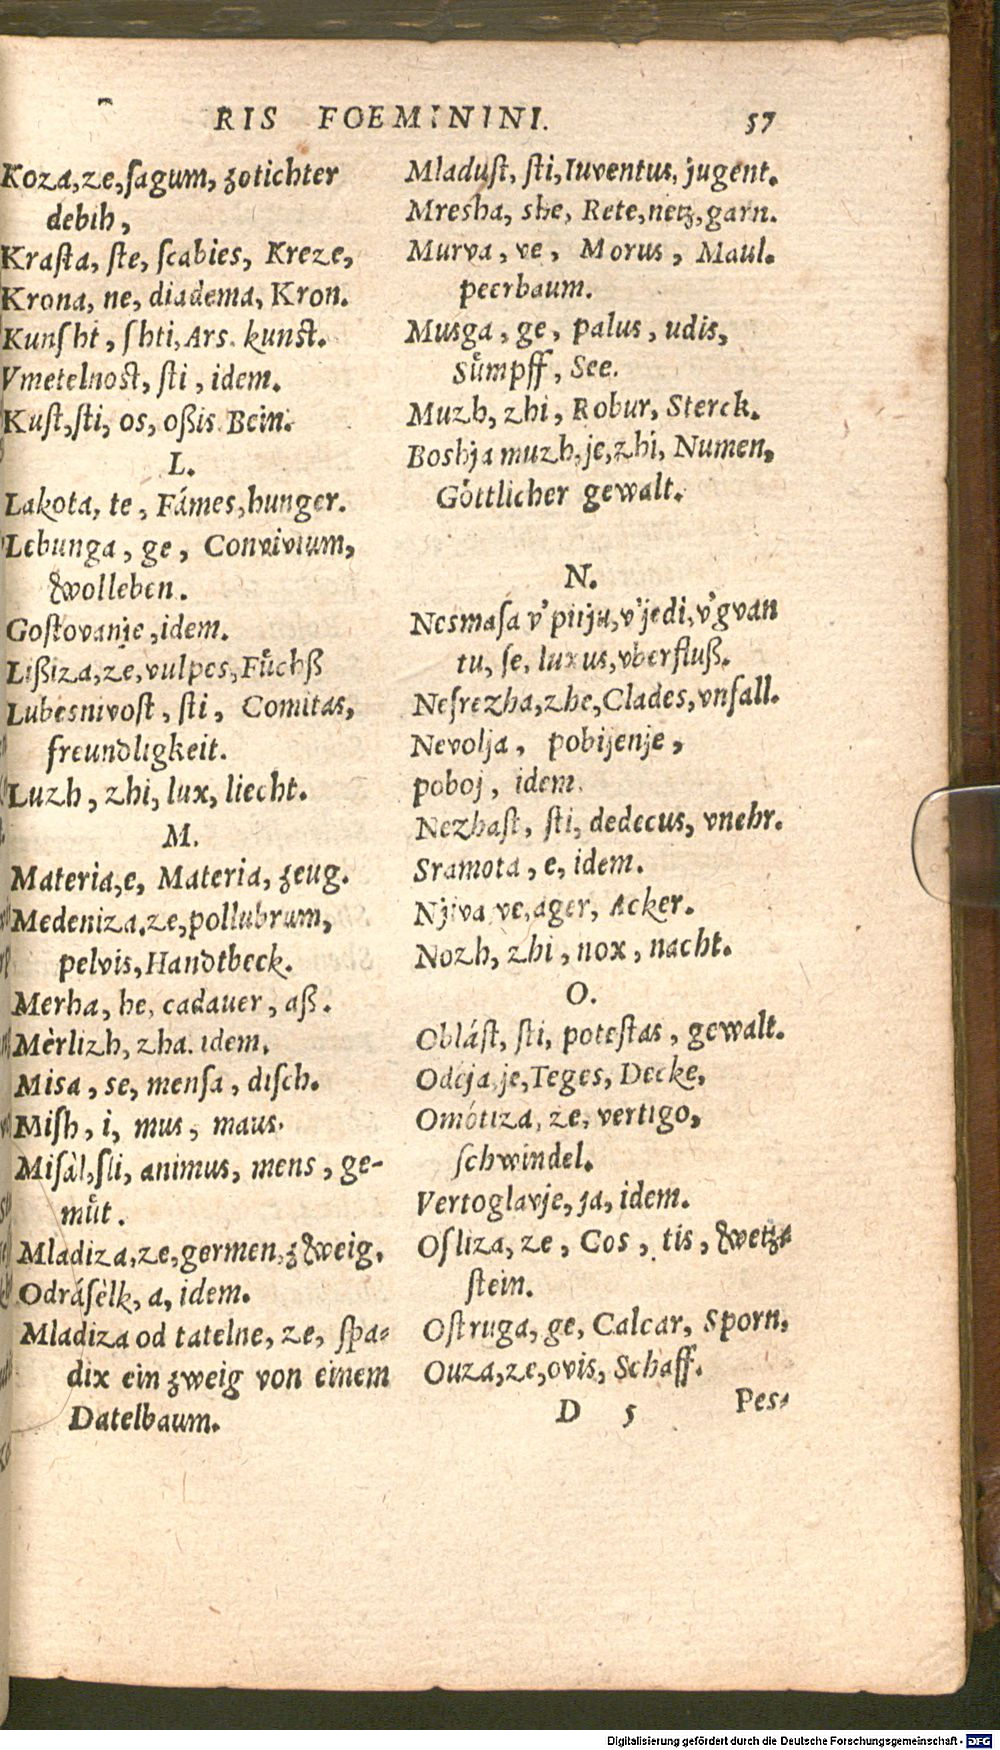 RIS FOEMININI. 57
Koza, ze, ſagum, zotichter
debih,
Kraſta, ſte, ſcabies, Kreze,
Krona, ne, diadema, Kron.
Kunſht, ſhti, Ars. kunſt.
Vmetelnoſt, ſti, idem.
Kuſt, ſti, os, oßis Bein.
L.
Lakota, te, Fámes, hunger.
Lebunga, ge, Convivium,
Wolleben.
Goſtovanje, idem.
Lißiza, ze, vulpes, Fuͤchß
Lubesnivoſt, ſti, Comitas,
freundligkeit.
Luzh, zhi, lux, liecht.
M.
Materia, e, Materia, zeug.
Medeniza, ze, pollubrum,
pelvis, Handtbeck.
Merha, he, cadauer, aß.
Mèrlizh, zha. idem.
Misa, se, menſa, diſch.
Miſh, i, mus, maus.
Miſàl, ſli, animus, mens, ge-
muͤt.
Mladiza, ze, germen, zWeig.
Odráſèlk, a, idem.
Mladiza od tatelne, ze, ſpa-
dix ein zweig von einem
Datelbaum.
Mladuſt, ſti, Iuventus, jugent.
Mresha, she, Rete, netz, garn.
Murva, ve, Morus, Maul.
peerbaum.
Musga, ge, palus, udis,
Suͤmpff, See.
Muzh, zhi, Robur, Sterck.
Boshja muzh, je, zhi, Numen,
Goͤttlicher gewalt.
N.
Nesmaſa v'pitju, v'jedi, v'gvan
tu, ſe, luxus, vberfluß.
Neſrezha, zhe, Clades, vnfall.
Nevolja, pobijenje,
poboj, idem.
Nezhaſt, ſti, dedecus, vnehr.
Sramota, e, idem.
Njiva ve, ager, Acker.
Nozh, zhi, nox, nacht.
O.
Obláſt, ſti, poteſtas, gewalt.
Odéja, je, Teges, Decke,
Omótiza, ze, vertigo,
ſchwindel.
Vertoglavje, ja, idem.
Oſliza, ze, Cos, tis, Wetz-
ſtein.
Oſtruga, ge, Calcar, Sporn,
Ouza, ze, ovis, Schaff.
D 5 Pes-
Digitalisierung gefördert durch die Deutsche Forschungsgemeinschaft - DFG